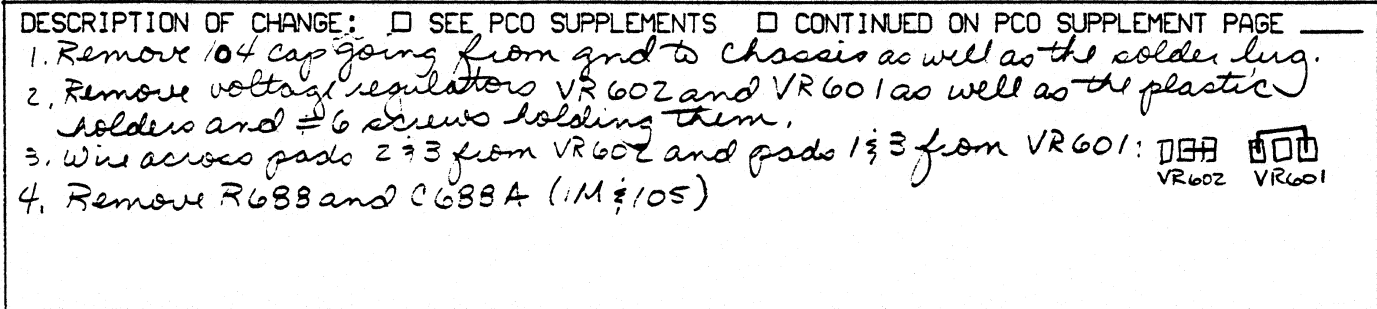 DESCRIPTION OF CHANGE: ☐ SEE PCO SUPPLEMENTS ☐ CONTINUED ON PCO SUPPLEMENT PAGE ____
1. Remove 104 cap going from gnd to chassis as well as the solder lug.
2. Remove voltage regulators VR602 and VR601 as well as the plastic
holders and #6 screws holding them.
3. Wire across pads 2 & 3 from VR602 and pads 1 & 3 from VR601:
VR602 VR601
4. Remove R688 and C688A (1M & 105)